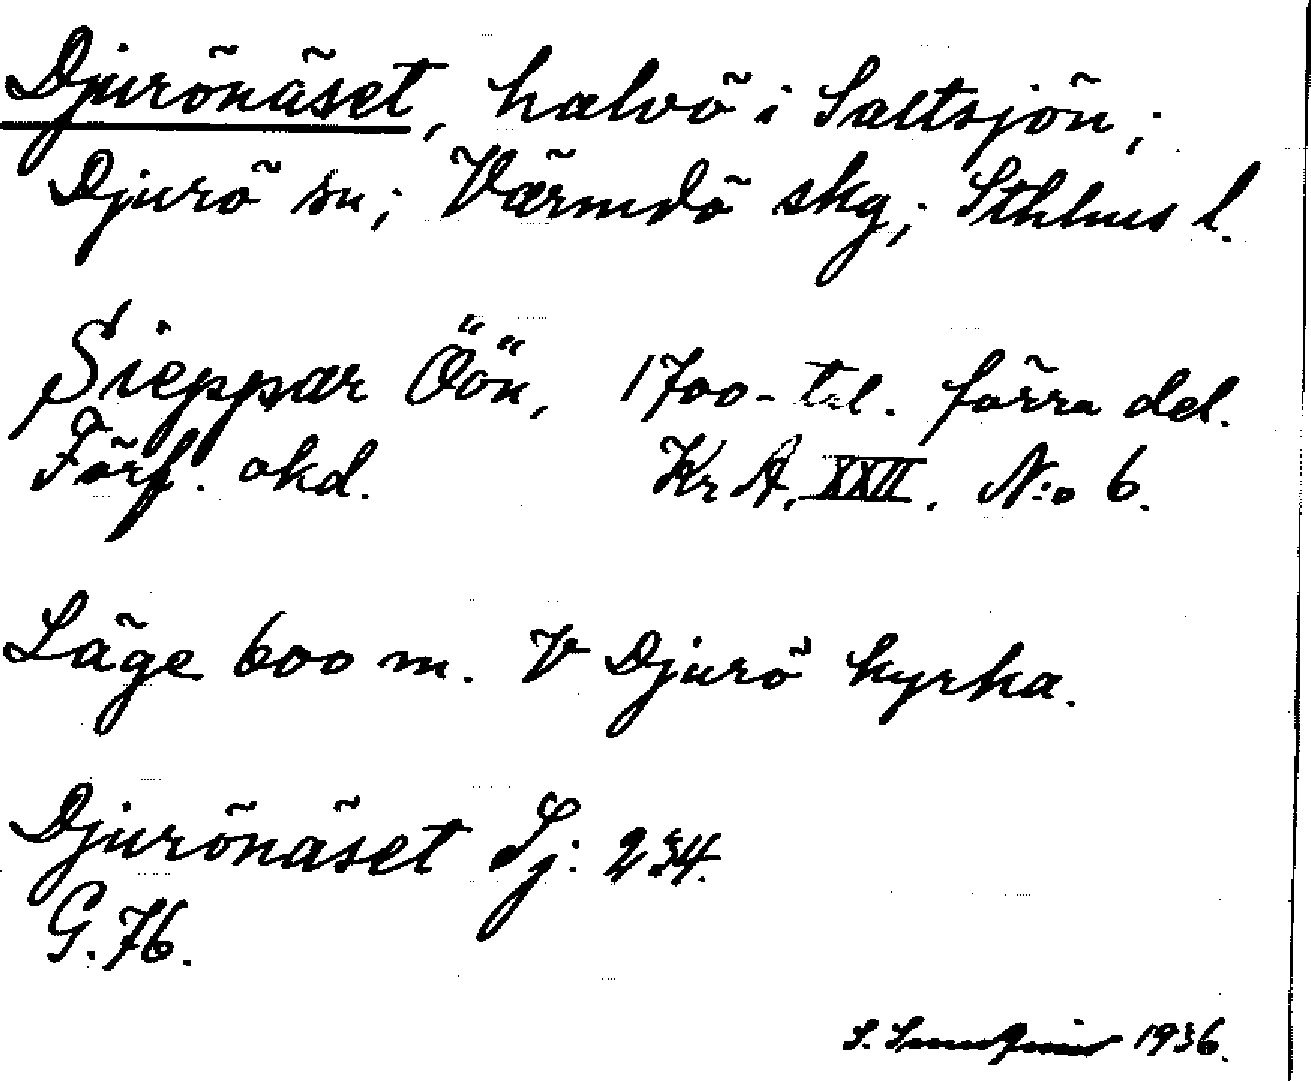 Djurönäset, halvö i Saltsjön;
Djurö sn; Värmdö skg; Sthlms l.
Sieppar Öön, 1700-tal. förra del.
Förf. okd. Kr A. XXII. N:o 6.
Läge 600 m. V Djurö kyrka.
Djurönäset Sj: 234.
G. 76.
S. 1936.